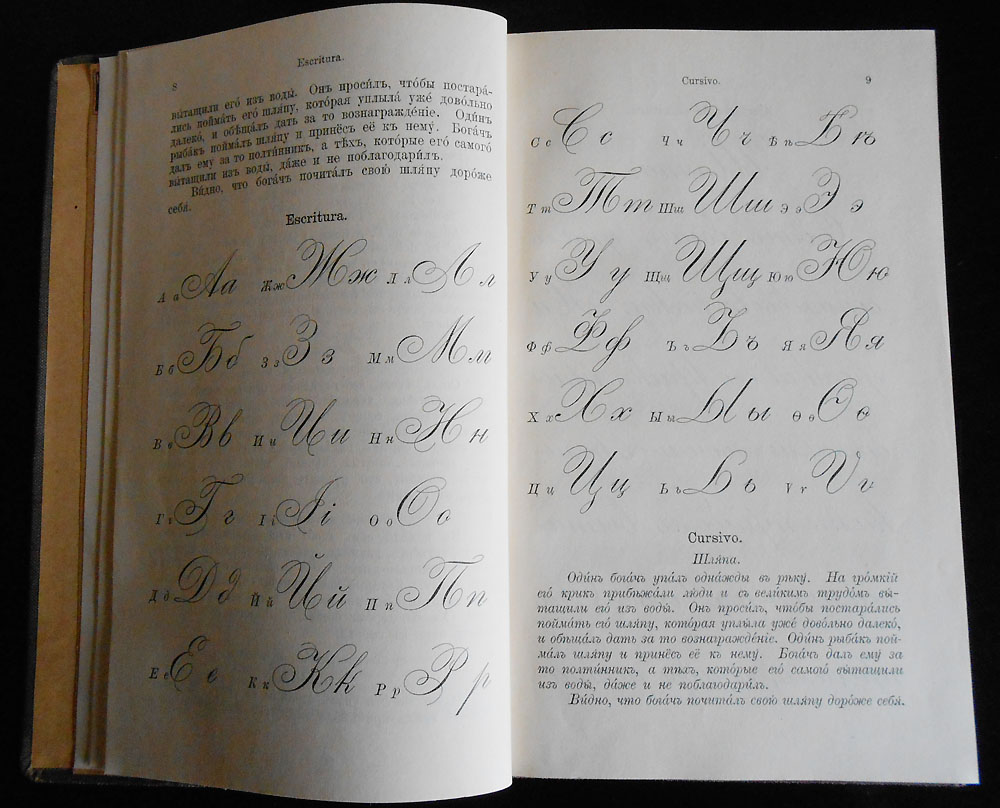 8
Escritura.
вы́тащили его́ изъ воды́. Онъ проси́лъ, что́бы постара́-
лись пойма́ть его́ шля́пу, кото́рая уплыла́ уже́ дово́льно
далеко́, и обѣща́лъ дать за то вознагражде́нie. Оди́нъ
рыба́къ пойма́лъ шля́пу и принёсъ её къ нему́. Бога́чъ
далъ ему́ за то полти́нникъ, а тѣхъ, кото́рые его́ самого́
вы́тащили изъ воды́, да́же и не поблагодари́лъ.
Ви́дно, что бога́чъ почита́лъ свою́ шля́пу доро́же
себя́.
Escritura.
А а Аа Жж Жж Л л Лл
Б б Бб З з Зз М м Мм
В в Вв И и Ии Н н Нн
Г г Гг І і Іі О о Оо
Д д Дд Й й Йй П п Пп
Е е Ее К к Кк Р р Рр
Cursivo.
9
С с Сс Ч ч Чч Ѣ ѣ Ѣѣ
Т т Тт Шш Шш Э э Ээ
У у Уу Щщ Щщ Ю ю Юю
Ф ф Фф Ъ ъ Ъъ Я я Яя
Х х Хх Ы ы Ыы Ѳ ѳ Ѳѳ
Ц ц Цц Ь ь Ьь Ѵ ѵ Ѵѵ
Cursivo.
Шля́па.
Оди́нъ бога́чъ упа́лъ одна́жды въ рѣку́. На гро́мкій
его́ крикъ прибѣжа́ли лю́ди и съ вели́кимъ трудо́мъ вы́-
тащили его́ изъ воды́. Онъ проси́лъ, что́бы постара́лись
пойма́ть его́ шля́пу, кото́рая уплыла́ уже́ дово́льно далеко́,
и обѣща́лъ дать за то вознагражде́ніе. Оди́нъ рыба́къ пой-
ма́лъ шля́пу и принёсъ её къ нему́. Бога́чъ далъ ему́ за
то полти́нникъ, а тѣхъ, кото́рые его́ самого́ вы́тащили
изъ воды́, да́же и не поблагодари́лъ.
Ви́дно, что бога́чъ почита́лъ свою́ шля́пу доро́же себя́.